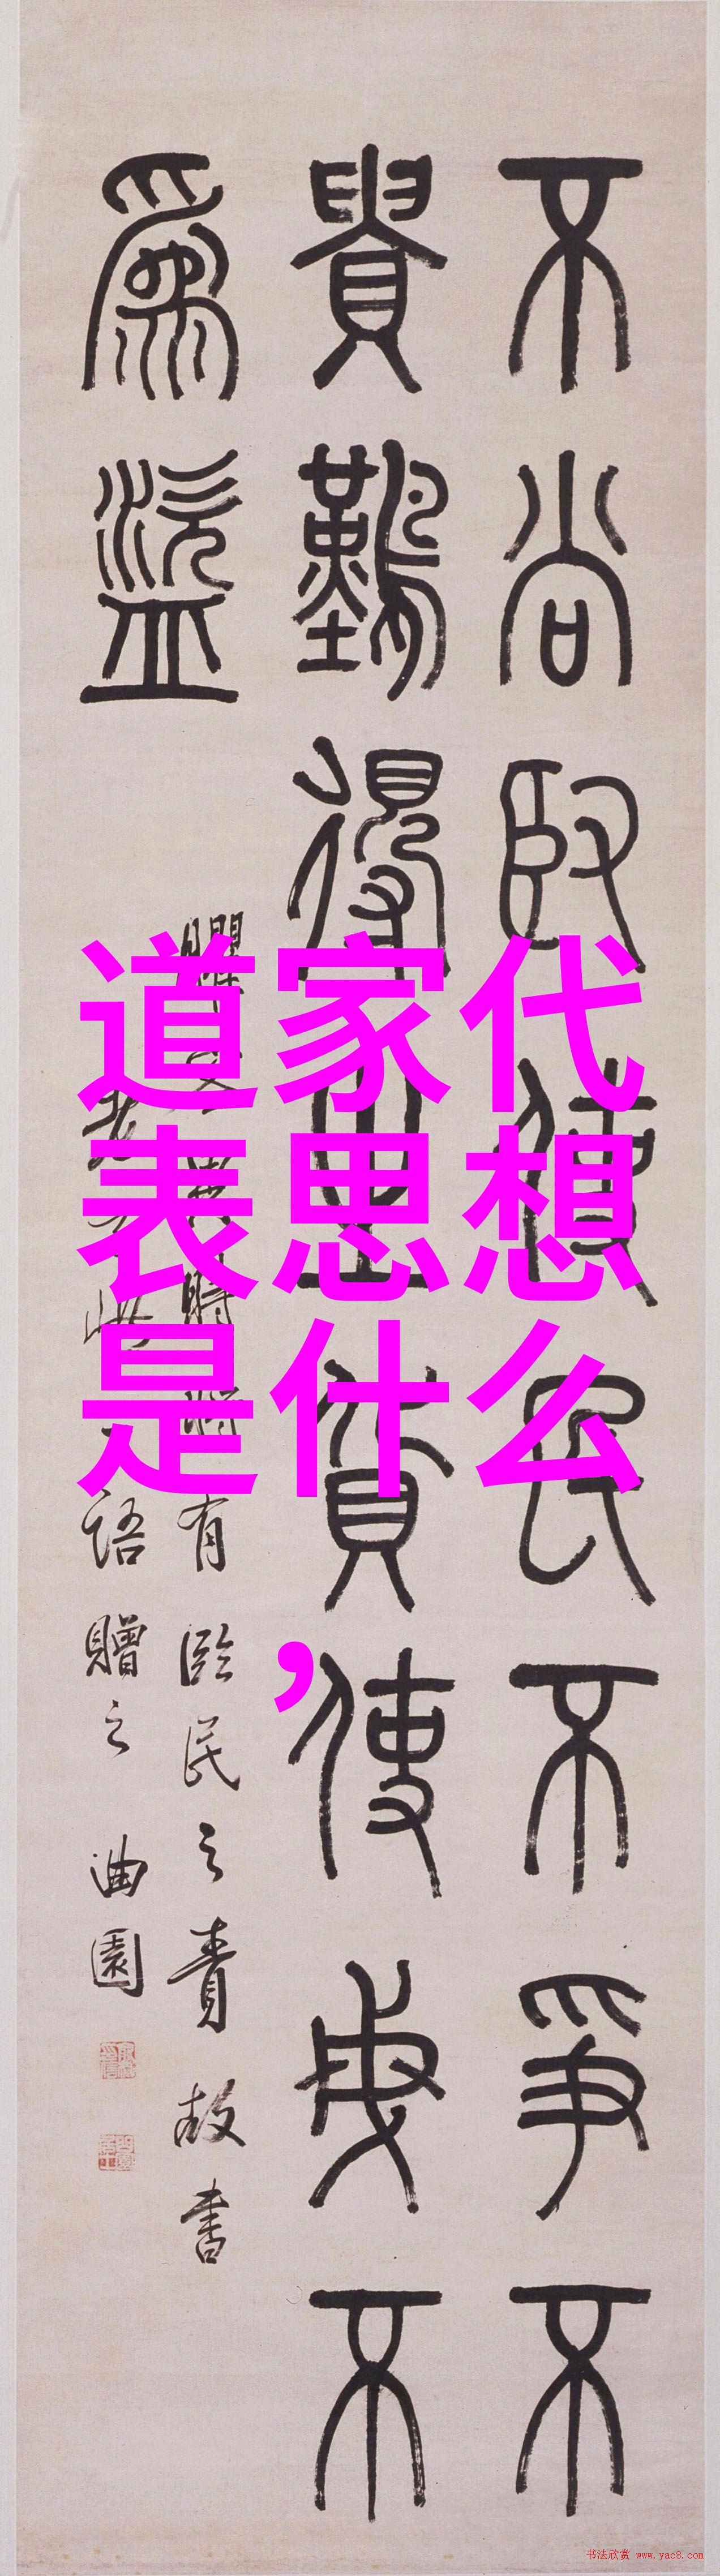 不尚臤使民不爭不
貴難得之貨使不
爲盜
有臨民之責故書
語贈之 曲園
道家代
表思想
是什么
，
书法欣赏 www.yac8.com